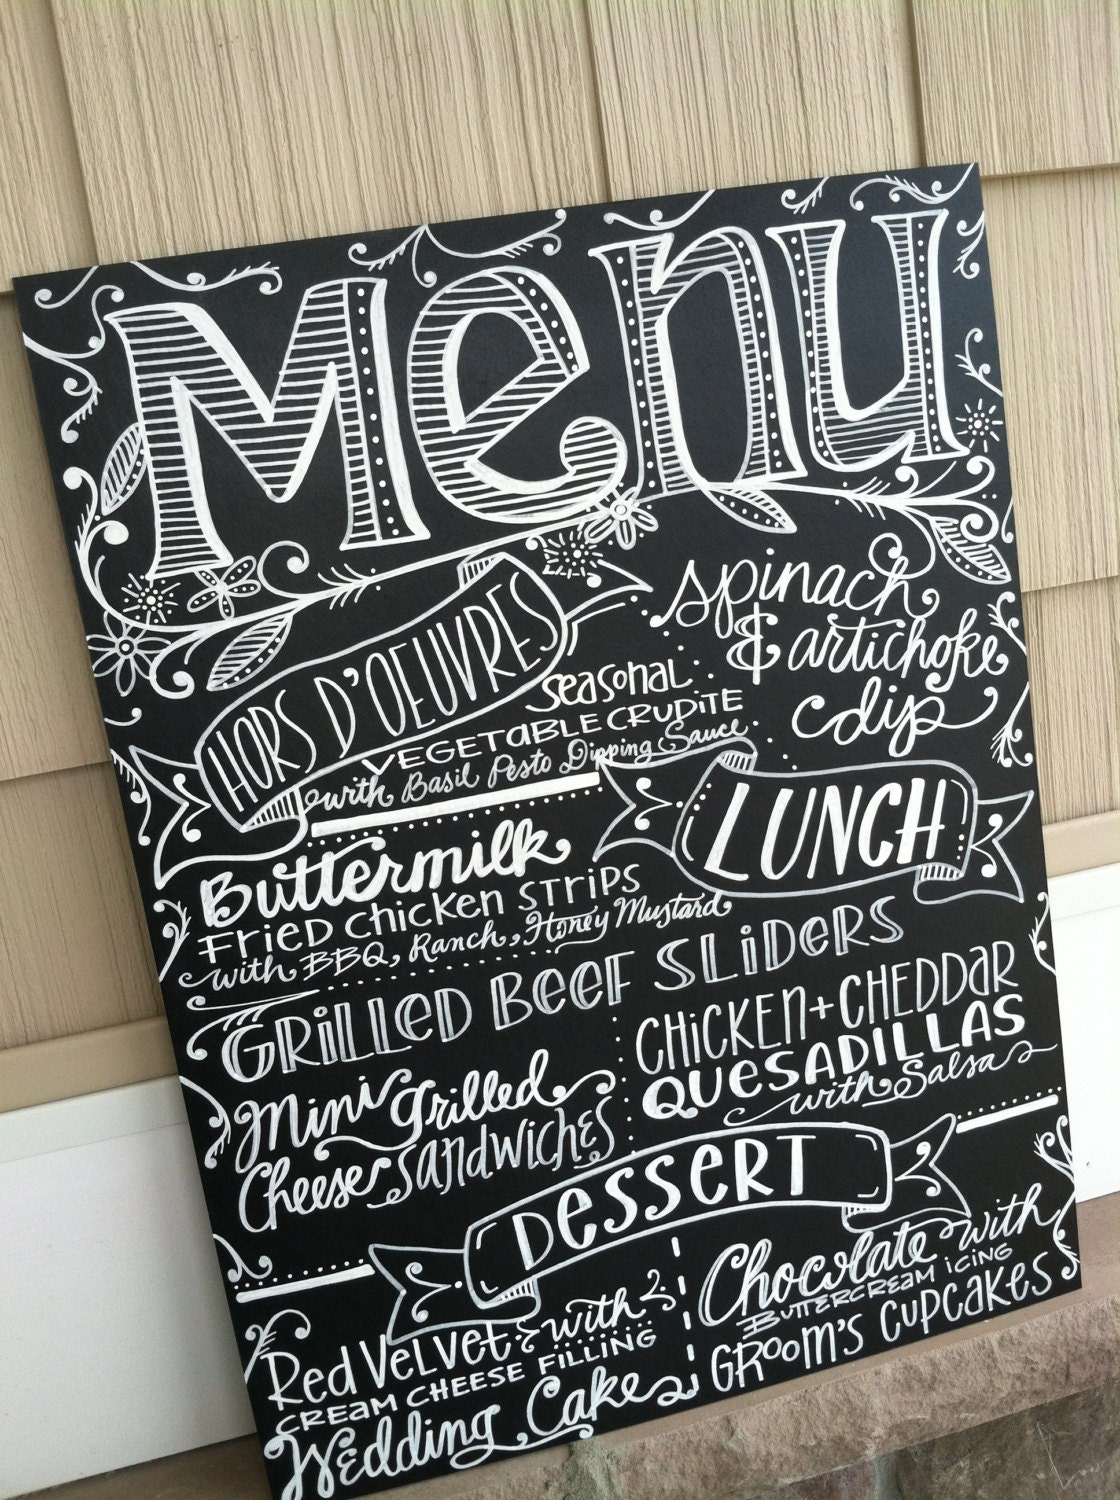 Menu
HORS D'OEUVRES
Seasonal
VEGETABLE CRUDITE
with Basil Pesto Dipping Sauce
spinach
& artichoke
dip
LUNCH
Buttermilk
FRIED CHICKEN STRIPS
with BBQ, Ranch, Honey Mustard
GRILLED BEEF SLIDERS
Mini Grilled
Cheese SANDWICHES
CHICKEN + CHEDDAR
QUESADILLAS
with Salsa
DESSERT
RED VELVET with
CREAM CHEESE FILLING
Wedding Cake
Chocolate with
BUTTERCREAM ICING
GROOM'S CUPCAKES